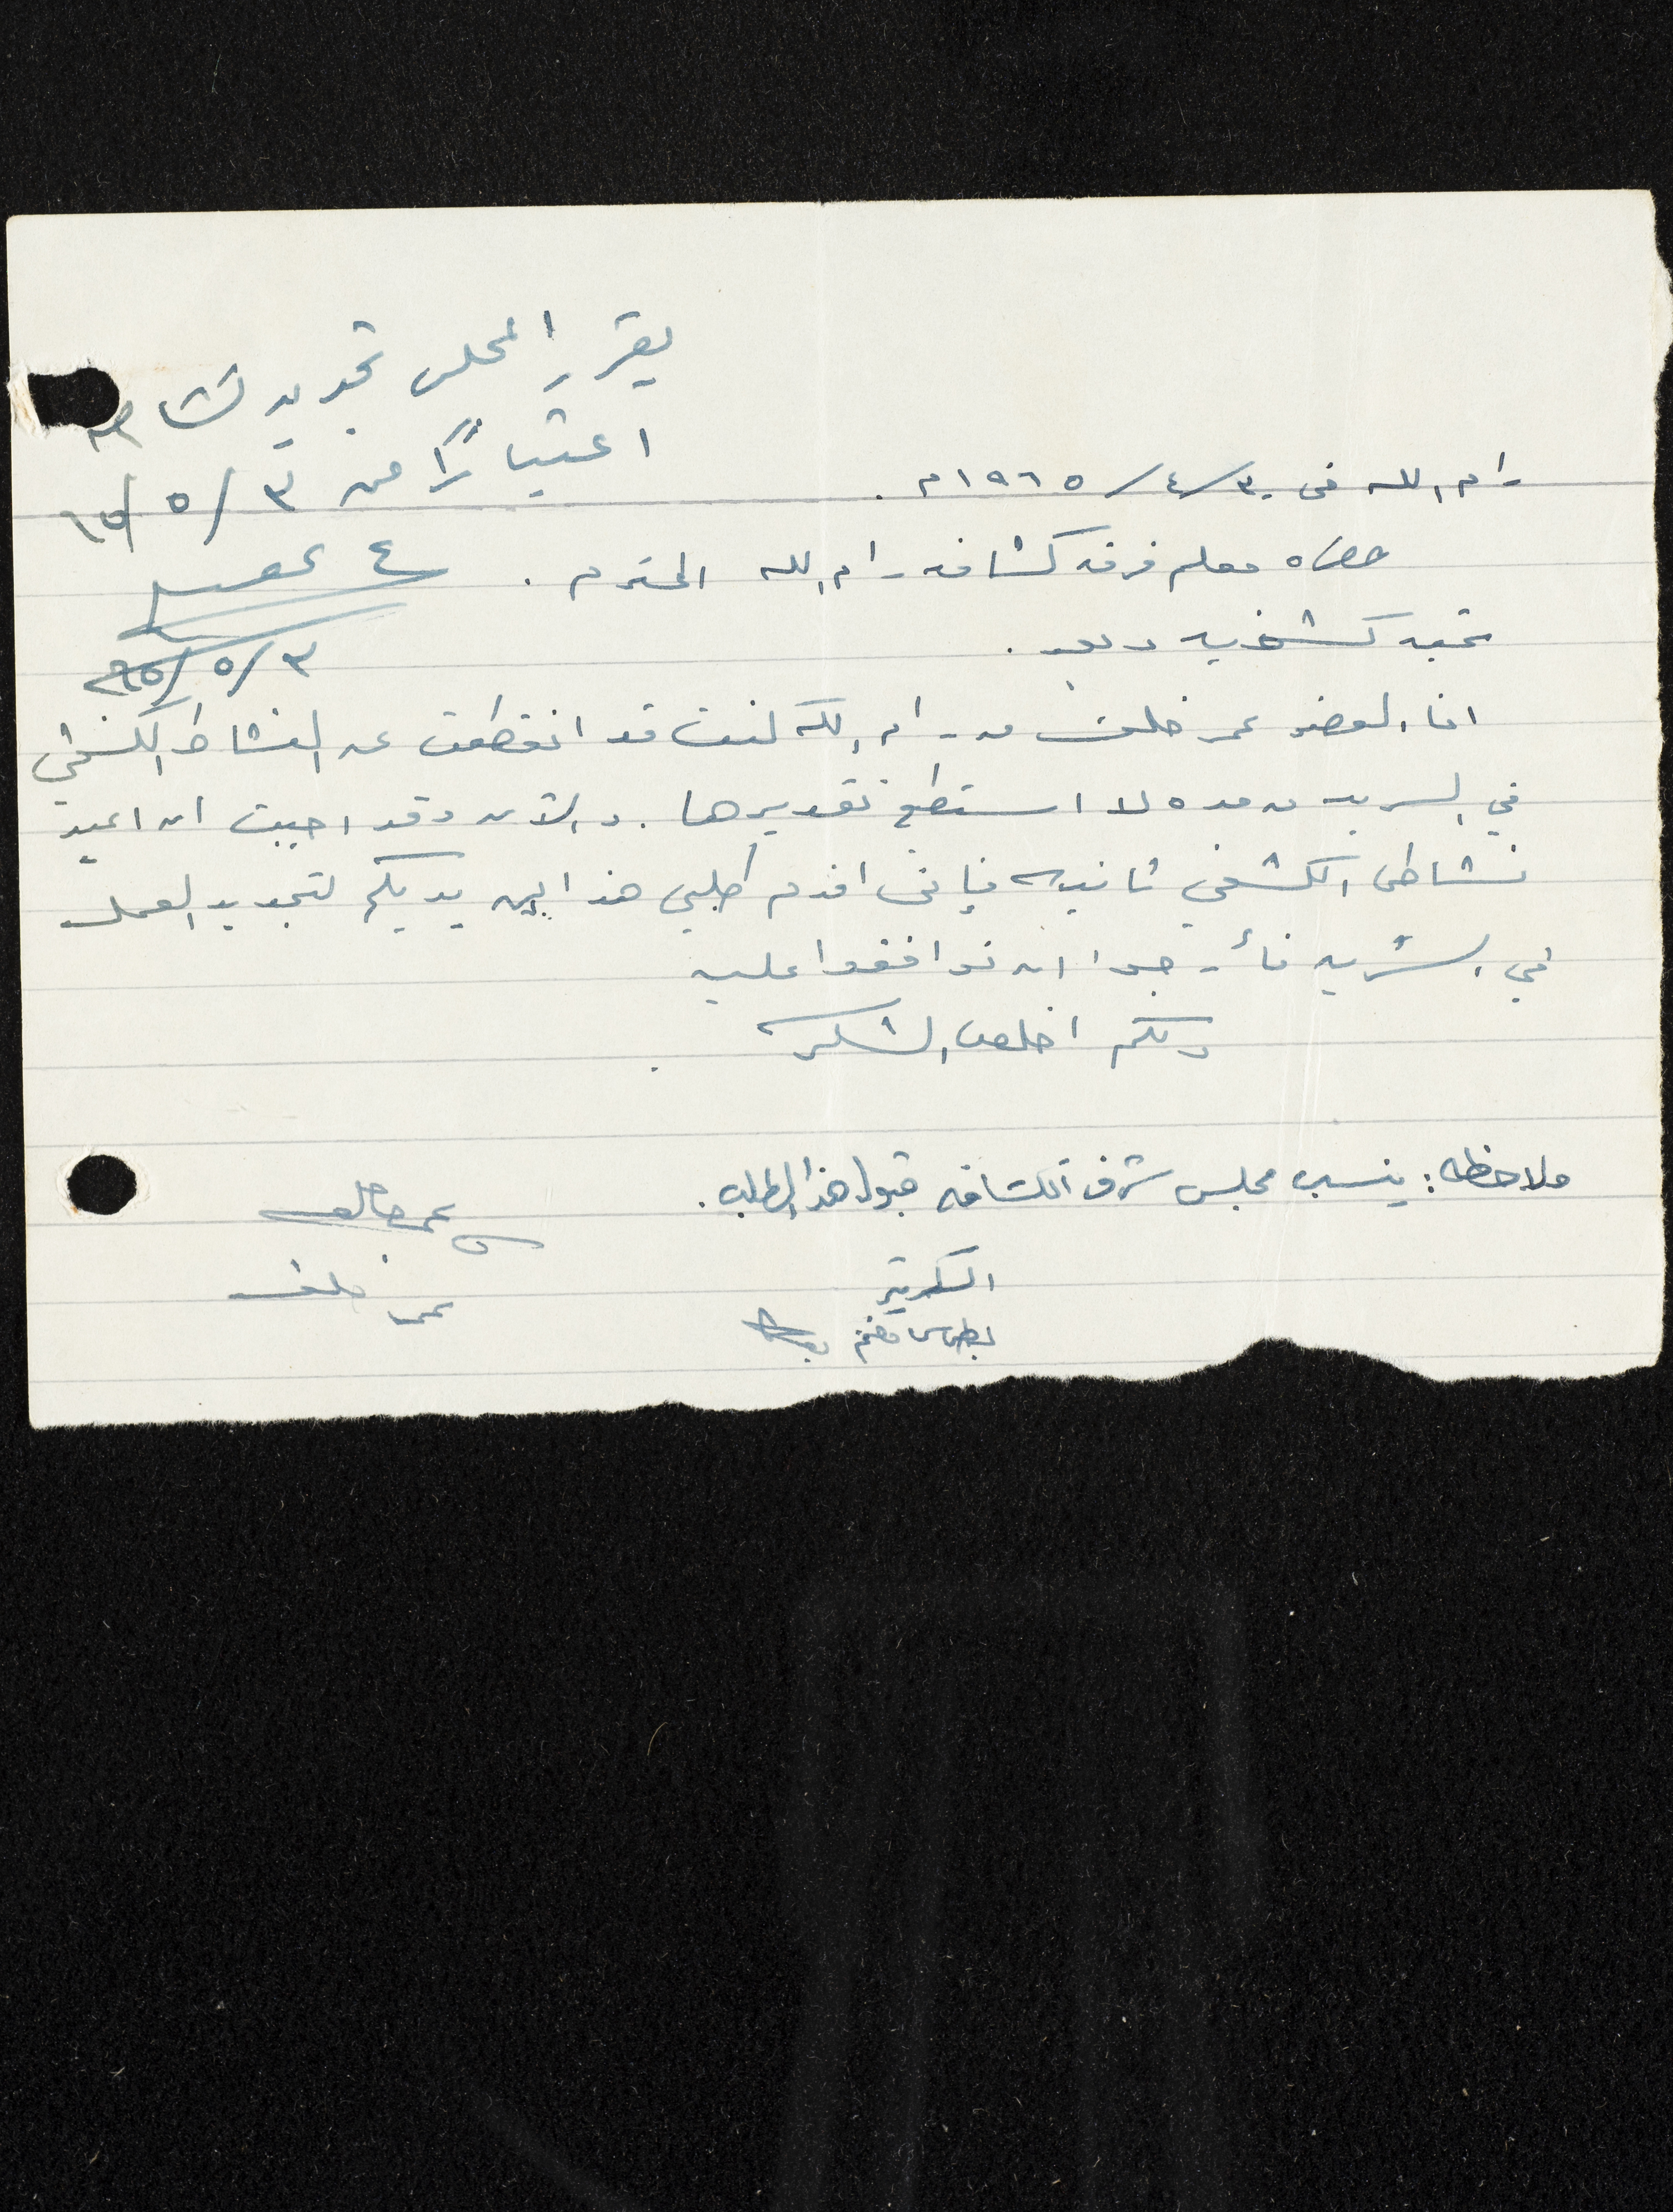 يقرر المجلس تجديد نشاطه
اعتبارًا من ٣/٥/٦٥
٣/٥/٩٦٥
رام الله في ٣٠/٤/١٩٦٥م.
حضرة معلم فرقة كشافة رام الله المحترم.
تحية كشفية وبعد.
انا العضو عمر خلف من رام الله كنت قد انقطعت عن النشاط الكشفي
في السرية من مدة لا استطيع تقديرها. والآن وقد احببت ان اعيد
نشاطي الكشفي ثانية فإني اقدم طلبي هذا بين يديكم لتجديد العمل
في السرية فأرجوا ان توافقوا عليه
ولكم اخلص الشكر.
ملاحظة: ينسب مجلس شرف الكشافة قبول هذا الطلب.
السكرتير
عمر خلف